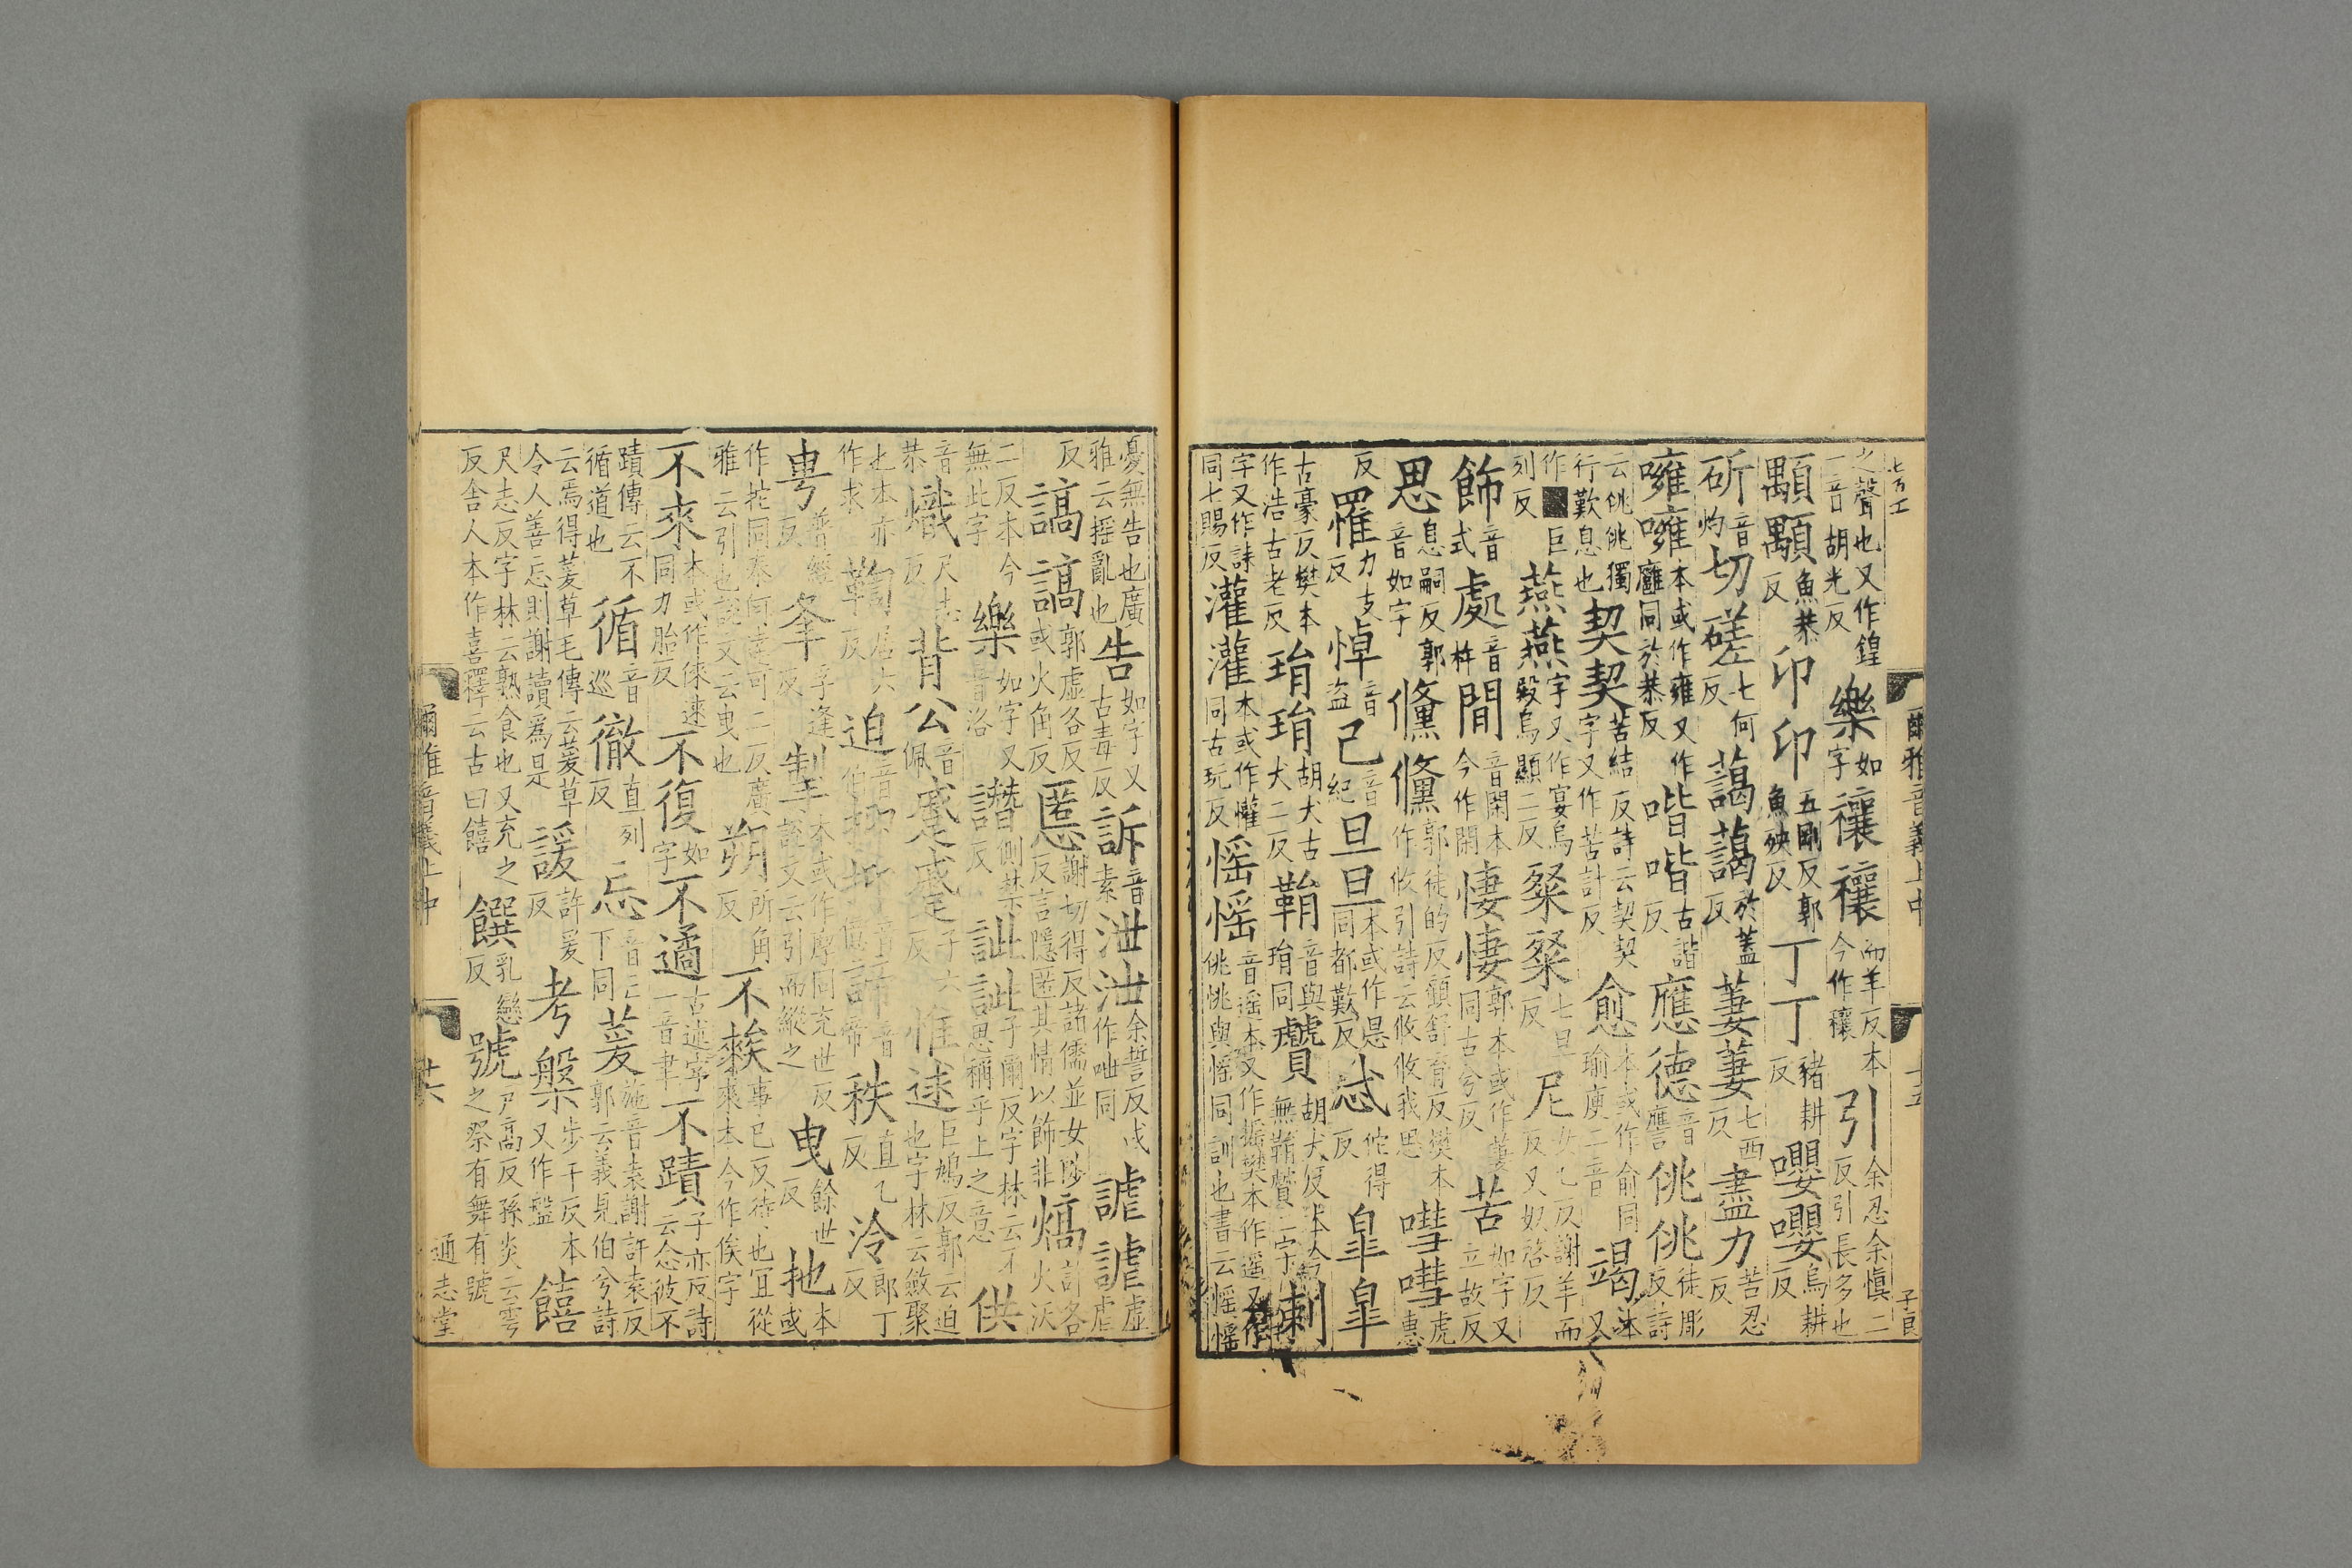 之聲也又作鍠一音胡光反 樂如字 禳禳而羊反本今作穰 引余忍余愼二反引長多也
顒顒魚恭反 卬卬五剛反郭魚殃反 丁丁豬耕反 嚶嚶烏耕反
斫音灼 切磋七何反 藹藹於蓋反 萋萋七西反 盡力苦忍反
噰噰本或作雍又作廱同於恭反 喈喈古諧反 應德音譍 佻佻徒彫反詩
云佻佻獨行歎息也 契契苦結反詩云契契字又作苦計反 愈本或作俞同瑜庾二音 竭本又
作巨列反 燕燕字又作宴烏殿烏顯二反 粲粲七旦反 尼女乙反謝羊而反又奴啓反
飾音式 處音杵 閒音閑本今作閑 悽悽郭本或作萋同古兮反 苦如字又立故反
思息嗣反郭音如字 儵儵郭徒的反顧舒育反樊本作攸引詩云攸攸我思 嘒嘒虎惠
反 罹力支反 悼音盜 己音紀 旦旦本或作㫜同都歎反 忒佗得反 皐皐
古豪反樊本作浩古老反 琄琄胡犬古犬二反 鞙音與琄同 贙胡犬反 刺
字又作諫同七賜反 灌灌本或作懽同古玩反 愮愮音遥本又作摇樊本作遥又作佻佻與愮同訓也書云愮愮
憂無告也廣雅云摇亂也 告如字又古毒反 訴音素 泄泄余誓反或作呭同 謔謔虚虐
反 謞謞郭虚各反或火角反 慝謝切得反諸儒並女陟反言隱匿其情以飾非 熇許各火沃
二反本今無此字 樂如字又音洛 譖側禁反 訿訿子爾反字林云不思稱乎上之意 供
音恭 熾尺志反 背公音佩 蹙蹙子六反 惟逑巨鳩反郭云迫也字林云斂聚
也本亦作求 鞫居六反 迫音伯 抑抑音億 諦音帝 秩直乙反 泠郎丁反
甹普經反 夆孚逢反 掣本或作摩同充世反說文云引而縱之 曳餘世反 拖本或
作拕同泰何達可二反廣雅云引也說文云曳也 朔所角反 不俟事巳反待也宜從來本今作俟字
不來本或作倈逨同力胎反 不復如字 不遹古述字一音聿 不蹟子亦反詩云念彼不
蹟傳云不循道也 循音巡 徹直列反 忘音亡下同 萲施音袁謝許袁反郭云義見伯兮詩
云焉得萲草毛傳云萲草令人善忘則謝讀爲是 諼許爰反 考槃步干反本又作盤 饎
尺志反字林云熟食也又充之反舍人本作喜釋云古曰饎 饌乳戀反 號戸高反孫炎云雩之祭有舞有號
爾雅音義上中 十五 子良
爾雅音義上中 共 通志堂